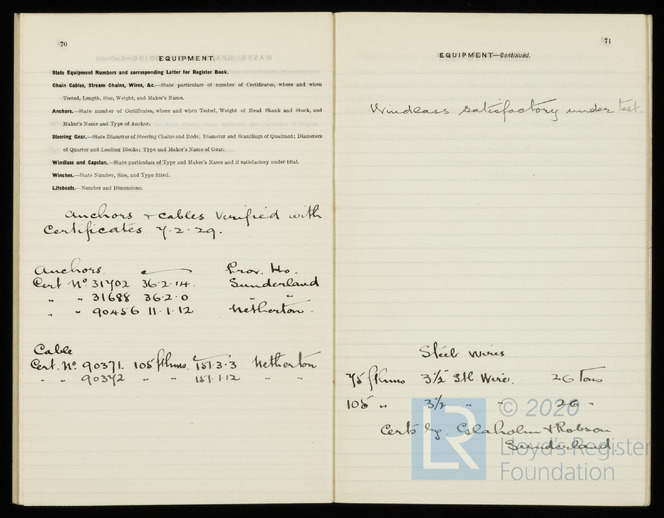 70
EQUIPMENT.
State Equipment Numbers and corresponding Letter for Register Book.
Chain Cables, Stream Chains, Wires, &c.—State particulars of number of Certificates, where and when
Tested, Length, Size, Weight, and Maker's Name.
Anchors.—State number of Certificates, where and when Tested, Weight of Head Shank and Stock, and
Maker's Name and Type of Anchor.
Steering Gear.—State Diameter of Steering Chains and Rods; Diameter and Scantlings of Quadrant; Diameters
of Quarter and Leading Blocks; Type and Maker's Name of Gear.
Windlass and Capstan.—State particulars of Type and Maker's Name and if satisfactory under trial.
Winches.—State Number, Size, and Type fitted.
Lifeboats.—Number and Dimensions.
Anchors + cables Verified with
Certificates 7.2.29.
Anchors. Prov. Ho.
Cert No 31702 36.2.14. Sunderland
" " 31688 36.2.0 " "
" " 90456 11.1.12 Netherton.
Cable
Cert. No. 90371. 105 fthms. 151.3.3 Netherton
" " 90372 " " 151.1.12 " "
71
EQUIPMENT—Continued.
Windlass satisfactory under test.
Steel Wires
75 fthms 3½ Stl. Wire. 26 Tons
105 " 3½ " " 26 "
Certs by Glaholm & Robson
Sunderland.
LR
© 2020
Lloyd's Register
Foundation